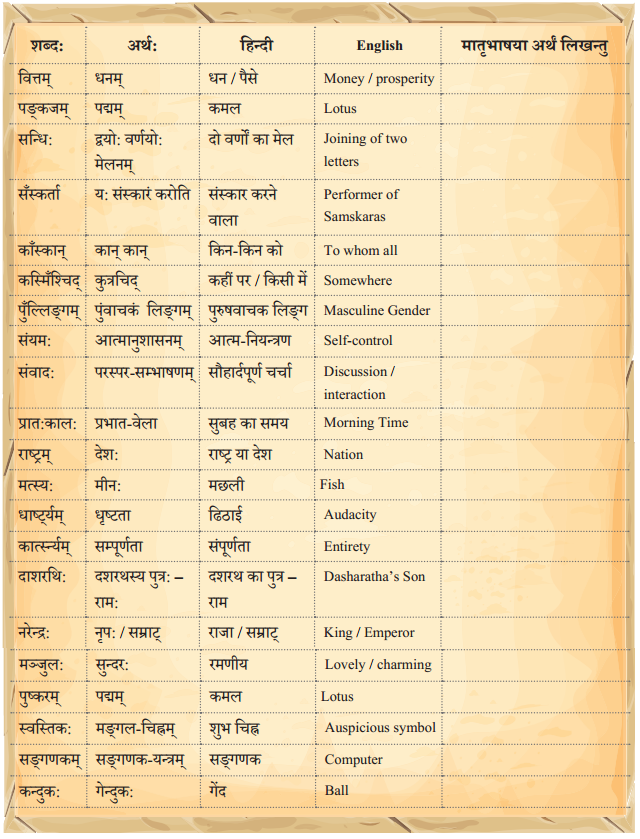 शब्दः अर्थः हिन्दी English मातृभाषया अर्थं लिखन्तु
वित्तम् धनम् धन / पैसे Money / prosperity
पङ्कजम् पद्मम् कमल Lotus
सन्धिः द्वयोः वर्णयोः दो वर्णों का मेल Joining of two
मेलनम् letters
सँस्कर्ता यः संस्कारं करोति संस्कार करने Performer of
वाला Samskaras
काँस्कान् कान् कान् किन-किन को To whom all
कस्मिँश्चिद् कुत्रचिद् कहीं पर / किसी में Somewhere
पुँल्लिङ्गम् पुंवाचकं लिङ्गम् पुरुषवाचक लिङ्ग Masculine Gender
संयमः आत्मानुशासनम् आत्म-नियन्त्रण Self-control
संवादः परस्पर-सम्भाषणम् सौहार्दपूर्ण चर्चा Discussion /
interaction
प्रातःकालः प्रभात-वेला सुबह का समय Morning Time
राष्ट्रम् देशः राष्ट्र या देश Nation
मत्स्यः मीनः मछली Fish
धार्ष्ट्यम् धृष्टता ढिठाई Audacity
कार्त्स्न्यम् सम्पूर्णता संपूर्णता Entirety
दाशरथिः दशरथस्य पुत्रः – दशरथ का पुत्र – Dasharatha’s Son
रामः राम
नरेन्द्रः नृपः / सम्राट् राजा / सम्राट् King / Emperor
मञ्जुलः सुन्दरः रमणीय Lovely / charming
पुष्करम् पद्मम् कमल Lotus
स्वस्तिकः मङ्गल-चिह्नम् शुभ चिह्न Auspicious symbol
सङ्गणकम् सङ्गणक-यन्त्रम् सङ्गणक Computer
कन्दुकः गेन्दुकः गेंद Ball